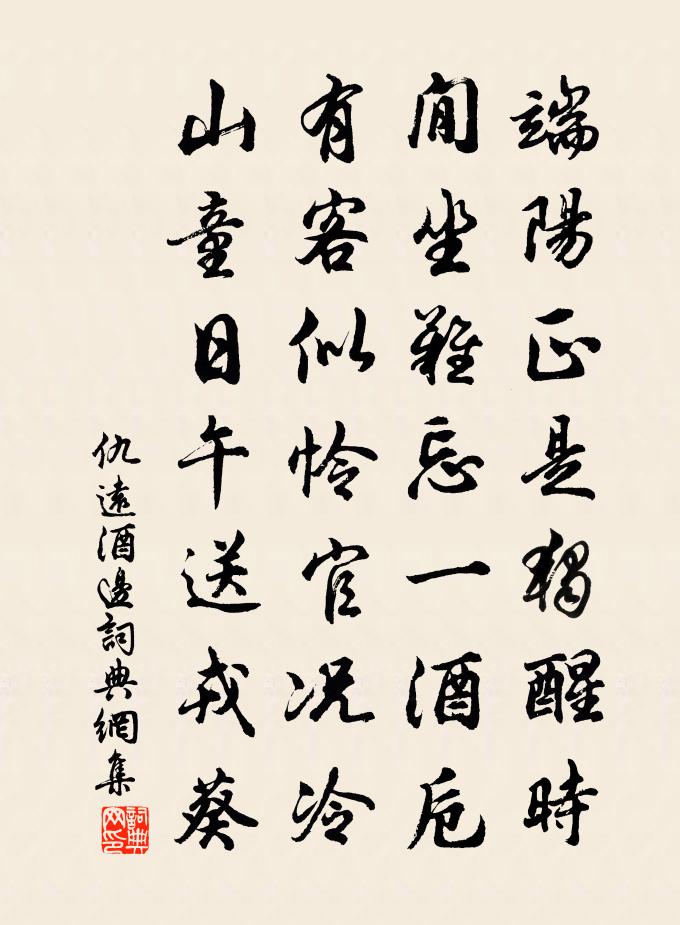 端陽正是獨醒時
閒坐難忘一酒卮
有客似憐官况冷
山童日午送戎葵
仇遠酒邊詞典網集
詞典网印